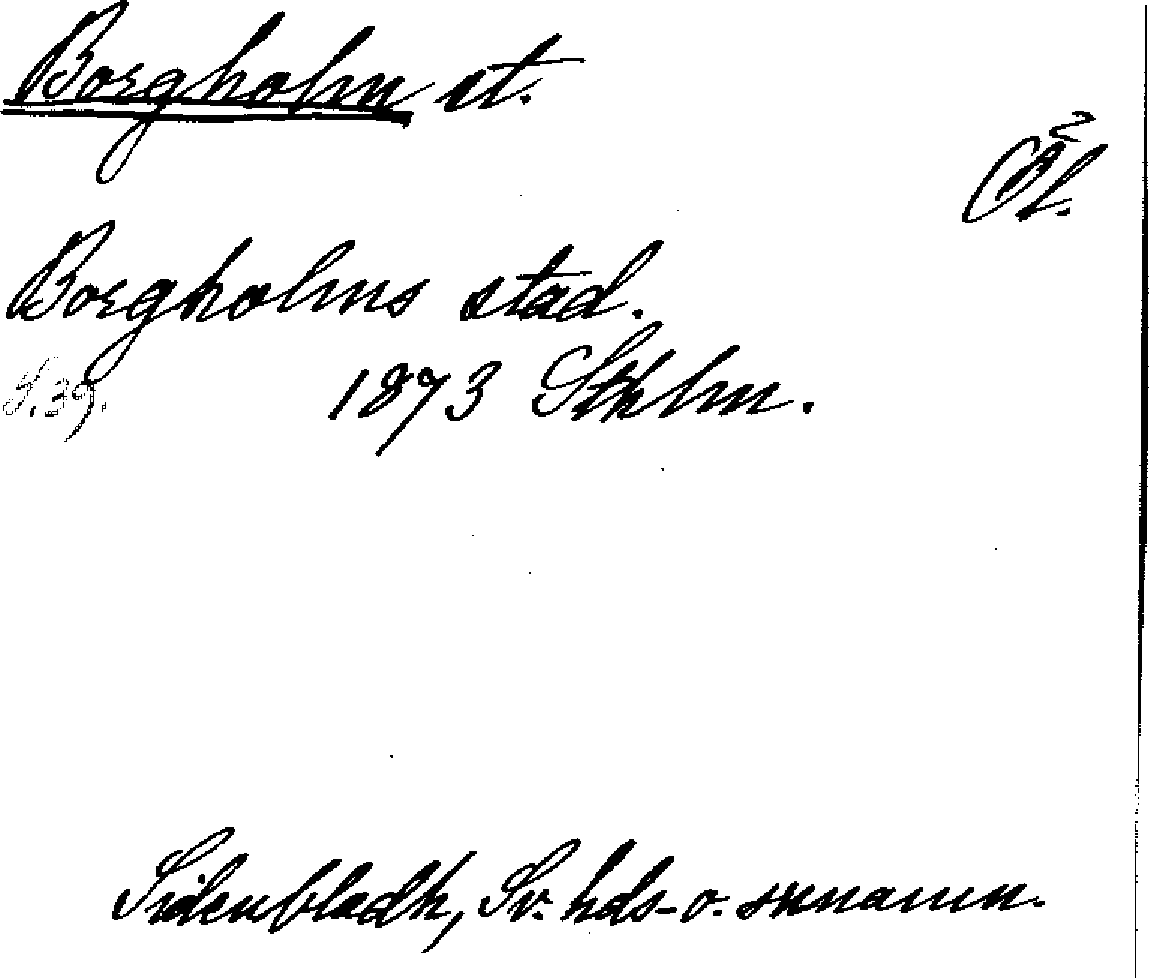 Borgholm st.
Öl.
Borgholms stad.
S. 39. 1873 Sthlm.
Sidenbladh, Sv. hds- o. snenamn.